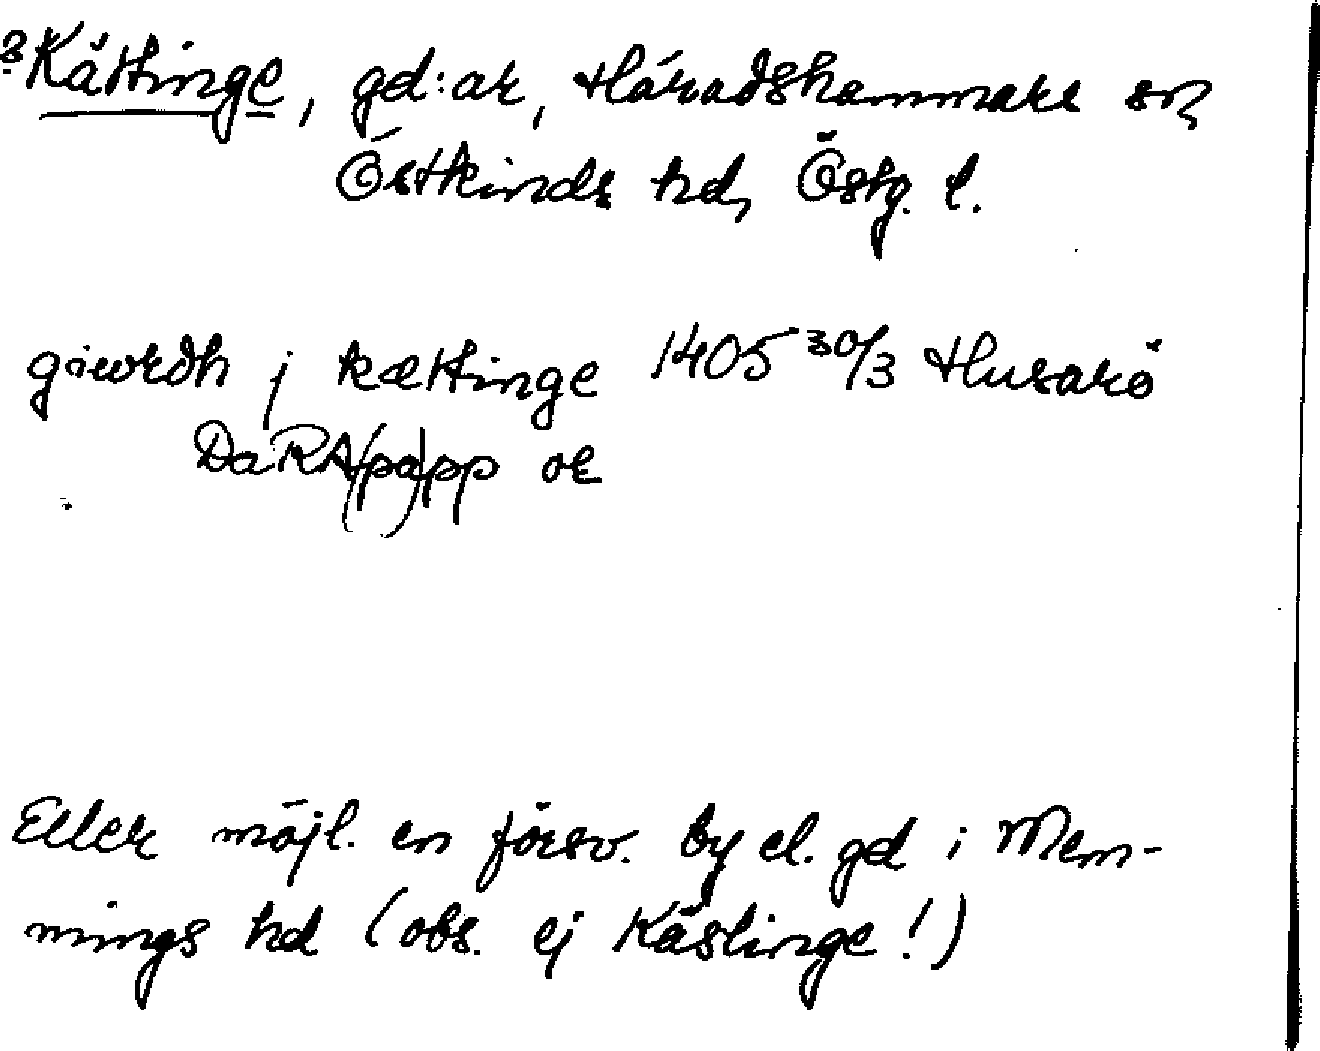 ?Kättinge, gd:ar, Häradshammars sn,
Östkinds hd, Östg. l.
giærdh j kættinge 1405 30/3 Husarö
DaRA(pa)pp or
Eller möjl. en försv. by el. gd i Mem-
mings hd (obs. ej Kästinge!)